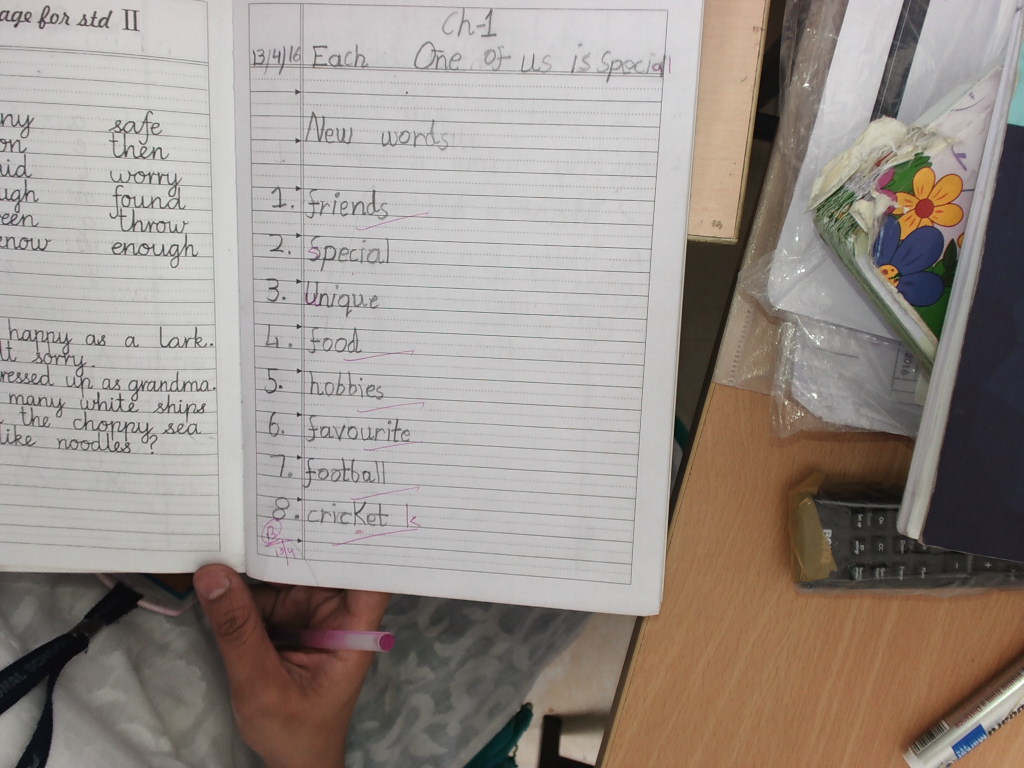 age for std II
ny safe
on then
uid worry
ugh found
een throw
enow enough
happy as a lark.
lt sorry.
ressed up as grandma.
many white ships
the choppy sea
like noodles?
Ch-1
13/4/16 Each One of us is Special
New words
1. friends
2. Special
3. Unique
4. food
5. hobbies
6. favourite
7. football
8. cricket k
13/4